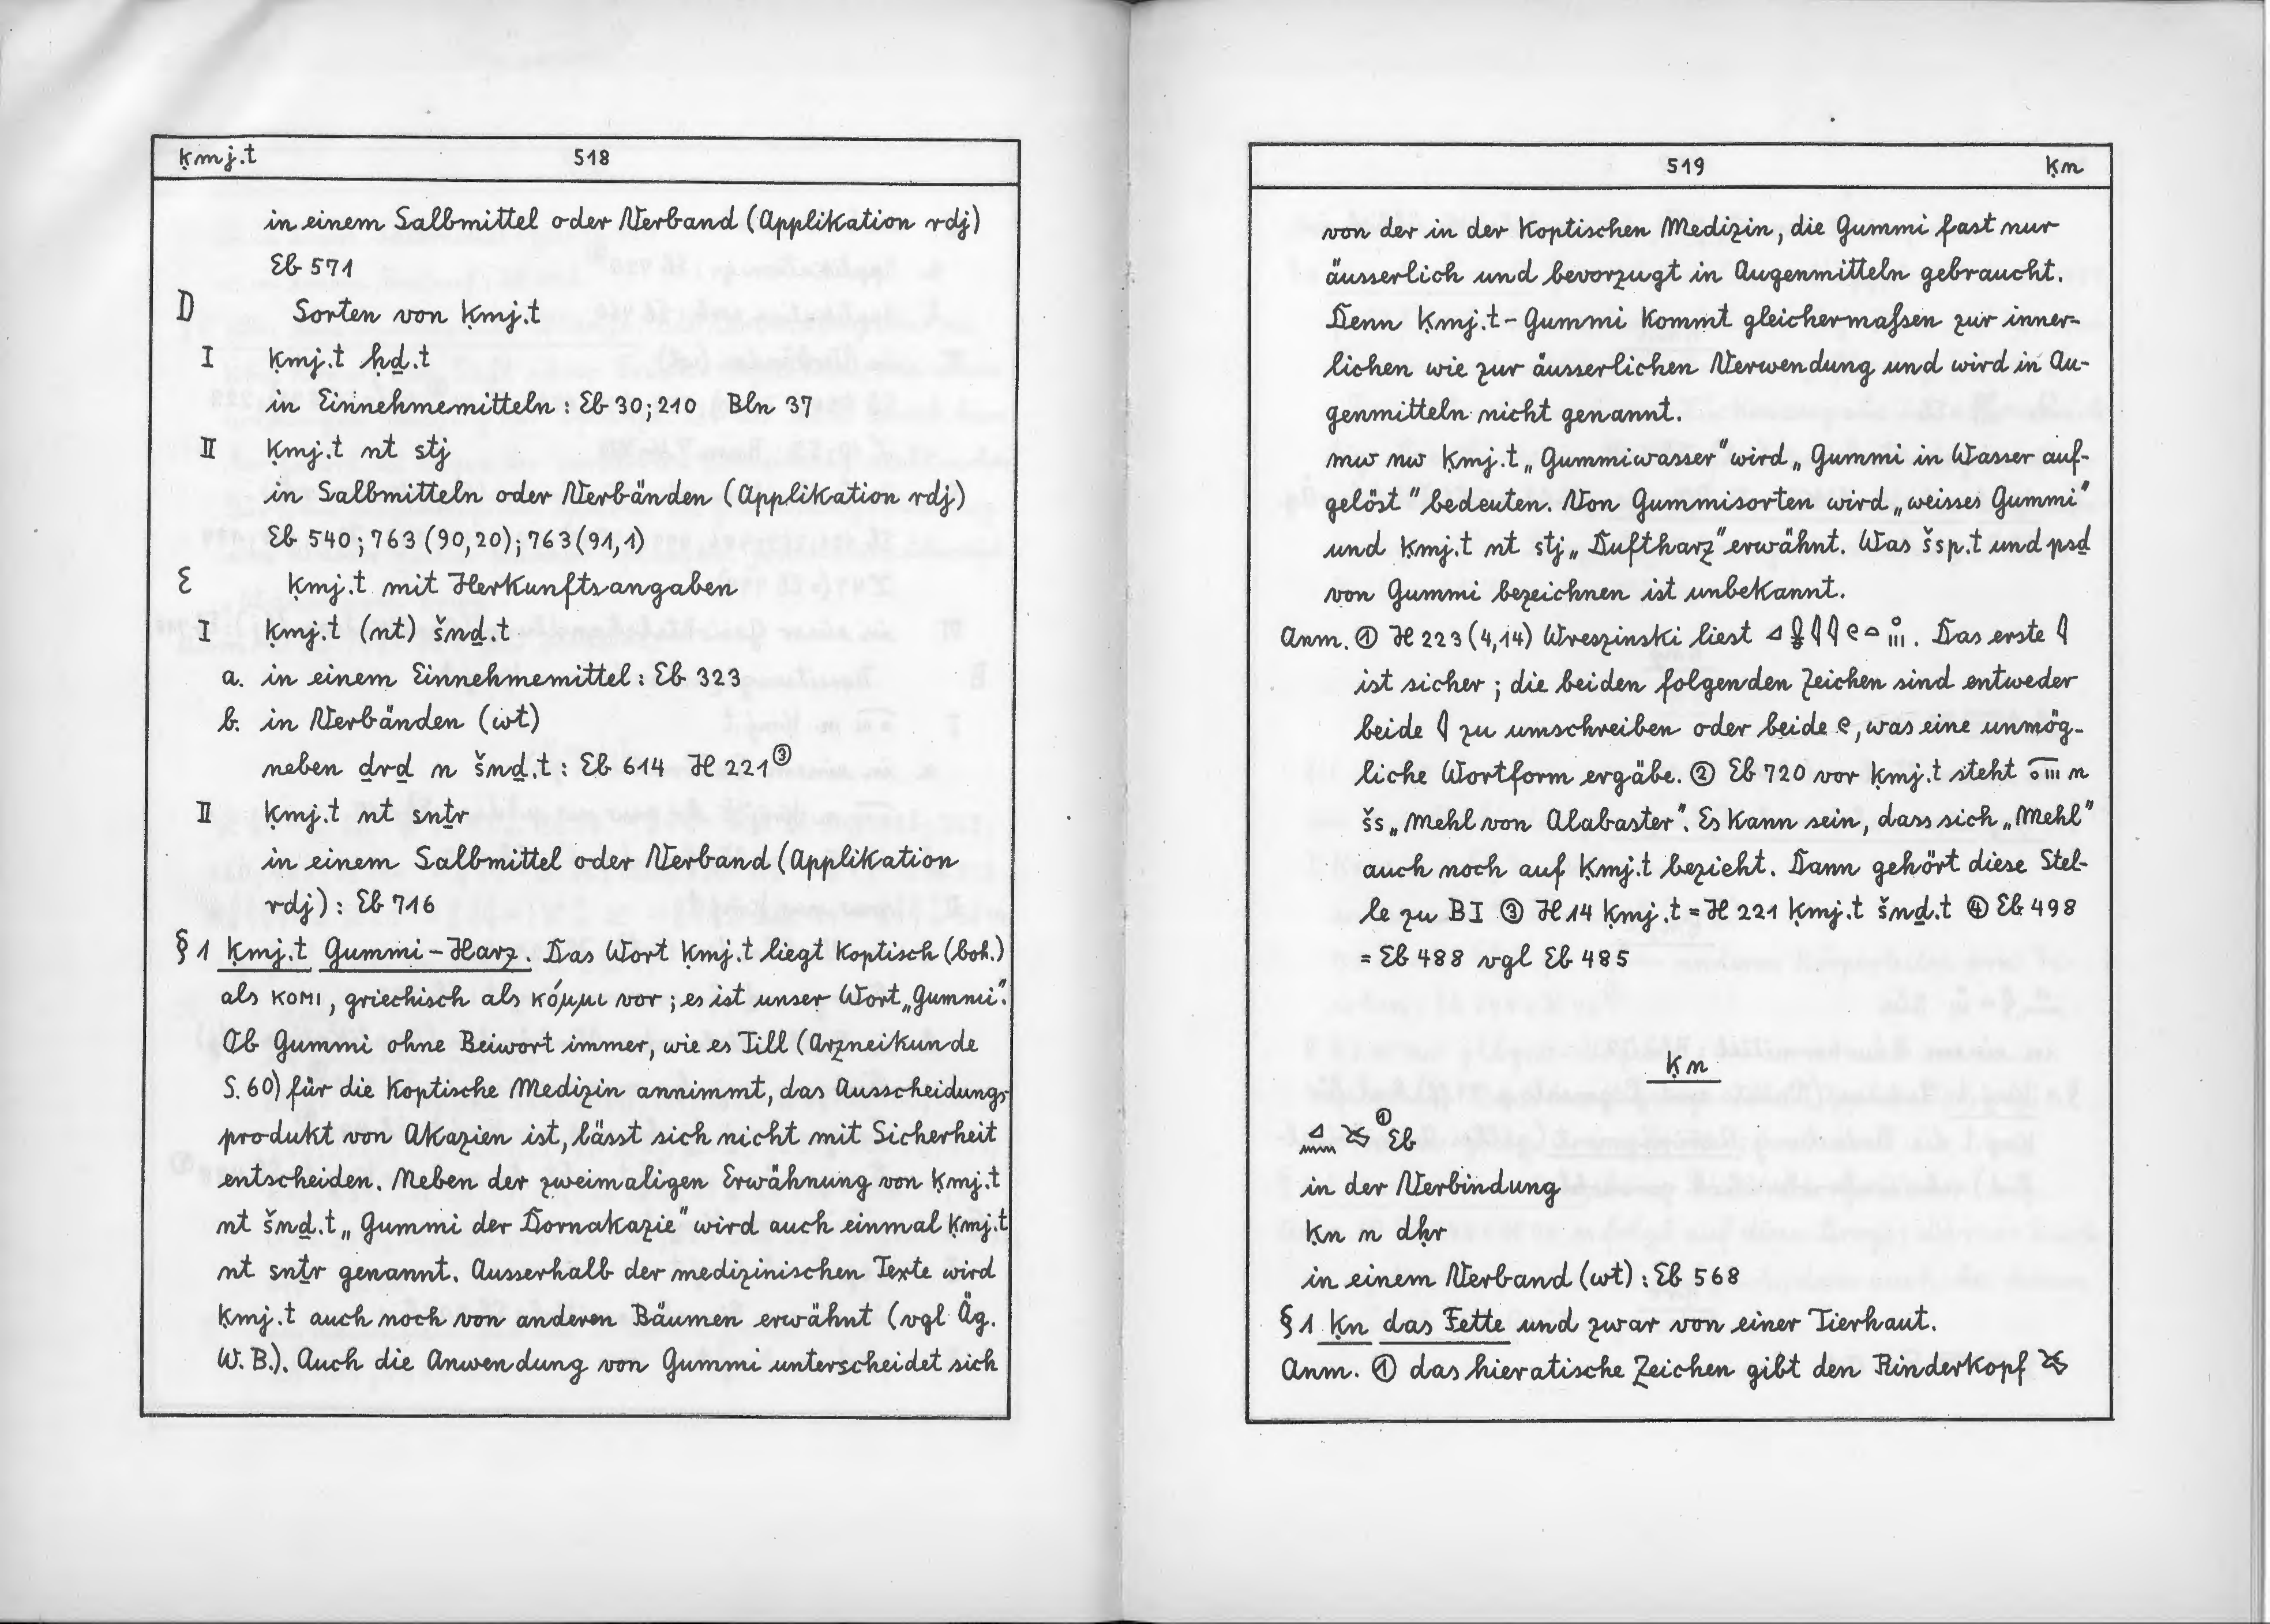 ḳmj.t 518
in einem Salbmittel oder Verband (Applikation rdj)
Eb 571
D Sorten von ḳmj.t
I ḳmj.t ḥḏ.t
in Einnehmemitteln : Eb 30; 210 Bln 37
II ḳmj.t nt stj
in Salbmitteln oder Verbänden (Applikation rdj)
Eb 540 ; 763 (90,20); 763 (91,1)
E ḳmj.t mit Herkunftsangaben
I ḳmj.t (nt) šnḏ.t
a. in einem Einnehmemittel : Eb 323
b. in Verbänden (wt)
neben ḏrḏ n šnḏ.t : Eb 614 H 221 ③
II ḳmj.t nt snṯr
in einem Salbmittel oder Verband (Applikation
rdj) : Eb 716
§ 1 ḳmj.t Gummi-Harz. Das Wort ḳmj.t liegt koptisch (boh.)
als ⲕⲟⲙⲓ, griechisch als κόμμι vor ; es ist unser Wort „Gummi".
Ob Gummi ohne Beiwort immer, wie es Till (Arzneikunde
S. 60) für die koptische Medizin annimmt, das Ausscheidungs-
produkt von Akazien ist, lässt sich nicht mit Sicherheit
entscheiden. Neben der zweimaligen Erwähnung von ḳmj.t
nt šnḏ.t „Gummi der Dornakazie" wird auch einmal ḳmj.t
nt snṯr genannt. Ausserhalb der medizinischen Texte wird
ḳmj.t auch noch von anderen Bäumen erwähnt (vgl Äg.
W. B.). Auch die Anwendung von Gummi unterscheidet sich
519 ḳn
von der in der koptischen Medizin, die Gummi fast nur
äusserlich und bevorzugt in Augenmitteln gebraucht.
Denn ḳmj.t-Gummi kommt gleichermaßen zur inner-
lichen wie zur äusserlichen Verwendung und wird in Au-
genmitteln nicht genannt.
mw nw ḳmj.t „Gummiwasser" wird „Gummi in Wasser auf-
gelöst" bedeuten. Von Gummisorten wird „weisses Gummi"
und ḳmj.t nt stj „Duftharz" erwähnt. Was šsp.t und psḏ
von Gummi bezeichnen ist unbekannt.
Anm. ① H 223 (4,14) Wreszinski liest . Das erste 𓇋
ist sicher ; die beiden folgenden Zeichen sind entweder
beide 𓇋 zu umschreiben oder beide 𓏲, was eine unmög-
liche Wortform ergäbe. ② Eb 720 vor ḳmj.t steht n
šs „Mehl von Alabaster". Es kann sein, dass sich „Mehl"
auch noch auf ḳmj.t bezieht. Dann gehört diese Stel-
le zu B I ③ H 14 ḳmj.t = H 221 ḳmj.t šnḏ.t ④ Eb 498
= Eb 488 vgl Eb 485
ḳn
𓈎𓈖 ① Eb
in der Verbindung
ḳn n dḥr
in einem Verband (wt) : Eb 568
§ 1 ḳn das Fette und zwar von einer Tierhaut.
Anm. ① das hieratische Zeichen gibt den Rinderkopf